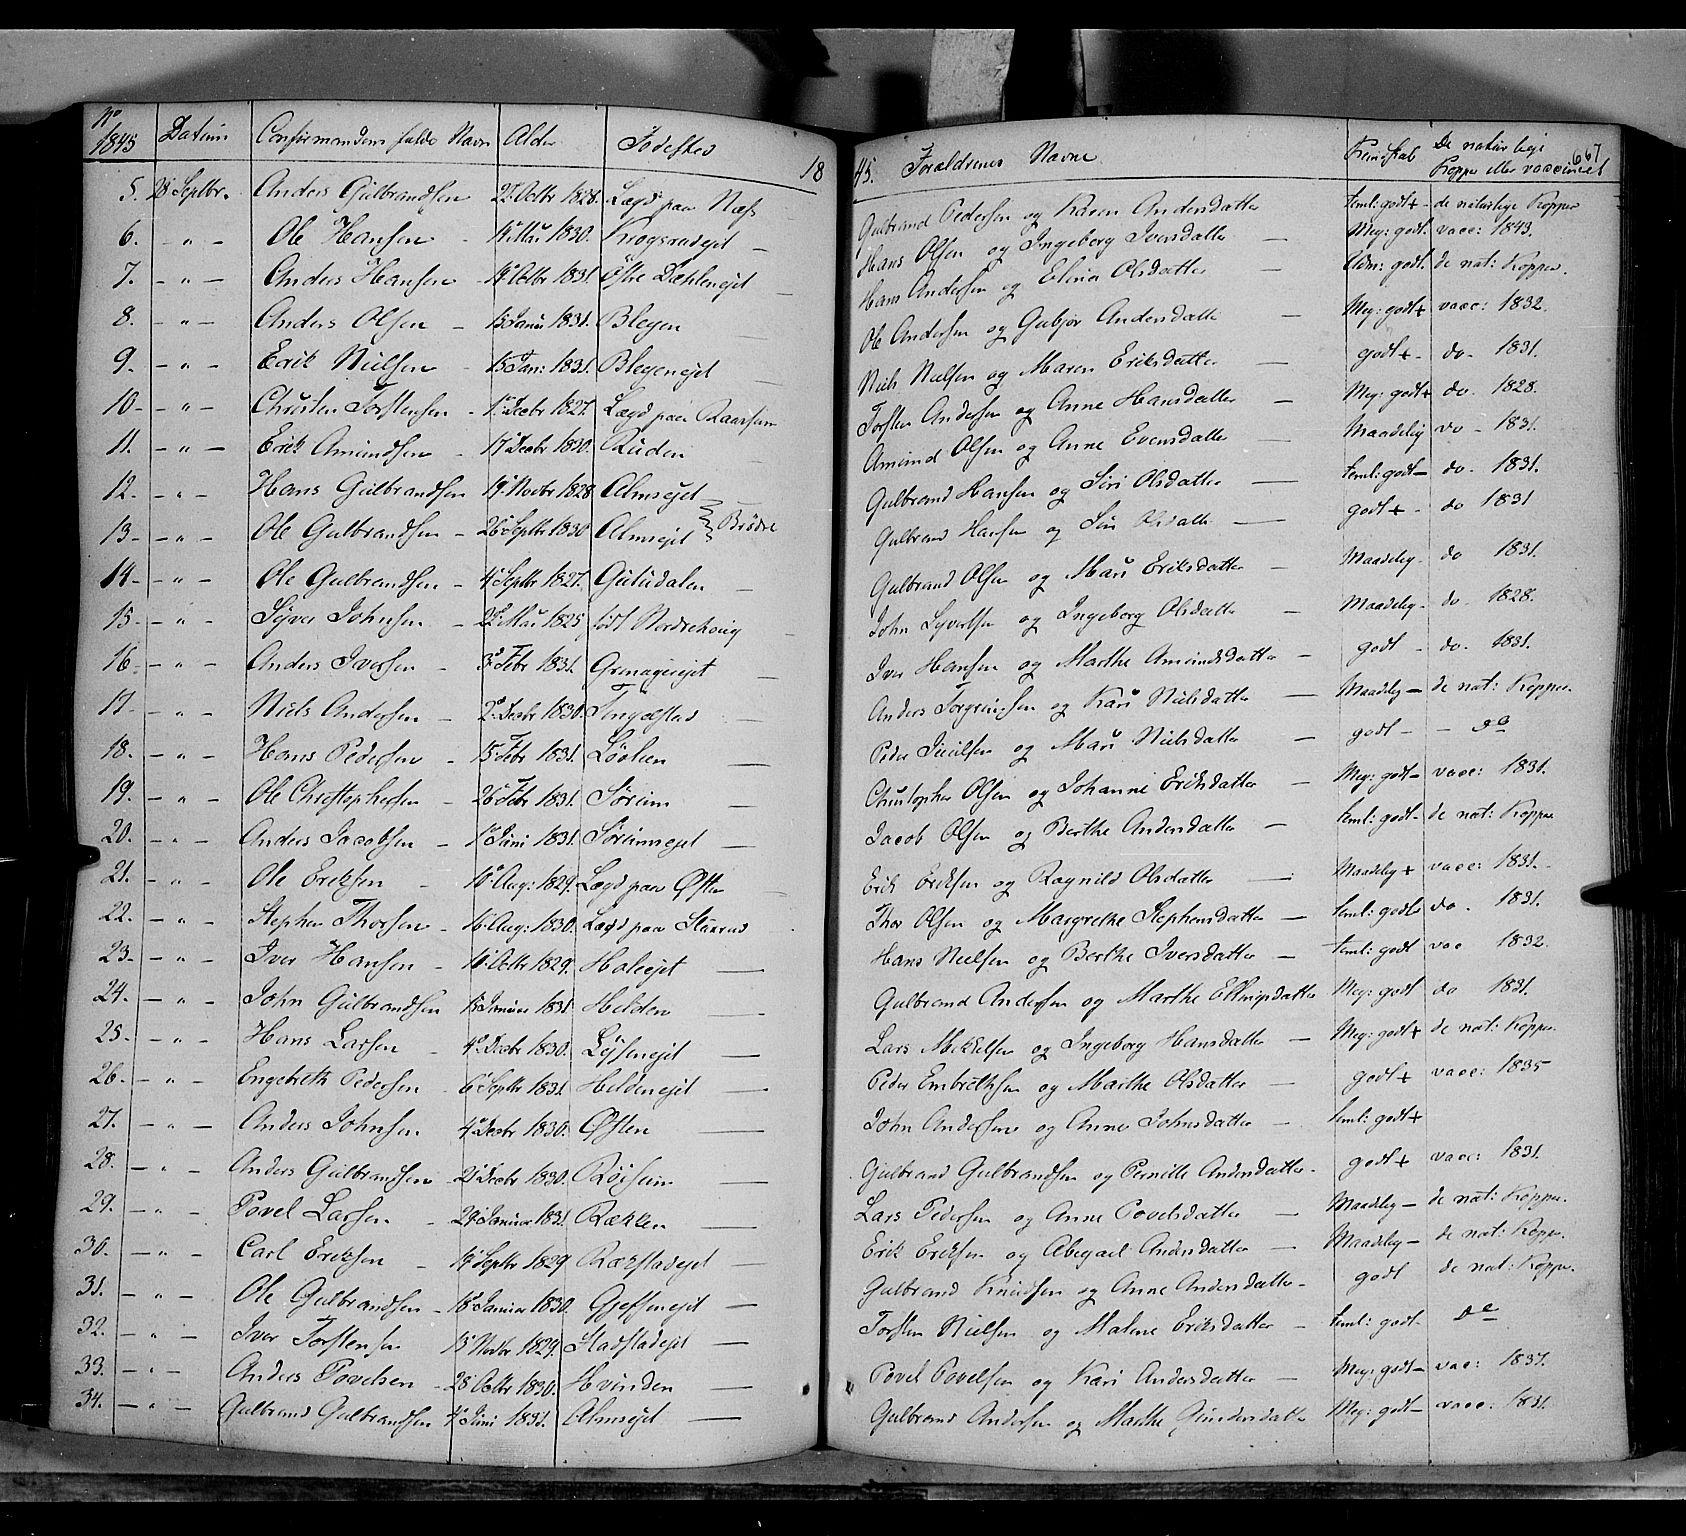 No 1845 Datum Confirmandens fulde Navn Alder Fødested 18
5. 28 Septbr. Anders Gulbrandsen 22 Octbr 1828. Lægd paa Næs
6. - " - Ole Hansen 1830. Krogsrudejet -
7. - " - Anders Hansen 14 Octbr 1831. Østre Dæhlenejet -
8. - " - Anders Olsen - 15 Janu 1831. Blegen -
9. - " - Erik Nielsen - 15 Jan: 1831. Blegenejet -
10. - " - Christen Torstensen - 1 Decbr 1827. Lægd paa Raassum
11. - " - Erik Amundsen - 17 Decbr 1830. Ruden -
12. - " - Hans Gulbrandsen 19 Novbr 1828 Almsejet -
13. - " - Ole Gulbrandsen - 26 Septbr 1830 Almsejet Brødre
14. - " - Ole Gulbrandsen - 4 Septbr 1827. Guludalen -
15. - " - Syver Johnsen - 22 Mai 1825 født Nordrehoug -
16. - " - Anders Iversen - 3 Febr 1831. Grinagerejet -
17. - " - Niels Andersen - 2 Decbr 1830. Tingelstad -
18. - " - Hans Pedersen - 15 Febr 1831. Løvlien -
19. - " - Ole Christophersen - 26 Febr 1831. Sørum -
20. - " - Anders Jacobsen - 1 Juni 1831. Sørumsejet -
21. - " - Ole Eriksen - 10 Aug: 1829. Lægd paa Østen -
22. - " - Stephen Thorsen - 16 Aug: 1830. Lægd paa Staxrud
23. - " - Iver Hansen - 10 Octbr 1829. Holeejet -
24. - " - John Gulbrandsen 15 Januar 1831 Helden -
25. - " - Hans Larsen - 4 Decbr 1830. Løsenejet -
26. - " - Engebreth Pedersen - 6 Septbr 1831. Heldenejet -
27. - " - Anders Johnsen - 4 Decbr 1830. Østen -
28. - " - Anders Gulbrandsen - 21 Decbr 1830. Røisum -
29. - " - Povel Larsen - 29 Januar 1831. Rækken -
30. - " - Carl Eriksen - 19 Septbr 1829 Rækstadejet -
31. - " - Ole Gulbrandsen - 18 Januar 1830. Gjefsenejet -
32. - " - Iver Torstensen 15 Novbr 1829. Stadstadejet -
33. - " - Anders Povelsen - 28 Octbr 1830. Hvinden -
34. - " - Gulbrand Gulbrandsen - 4 Juni 1831. Almsejet -
45. Forældrenes Navne Kundskab De naturlige Kopper eller vaccineret 667
Gulbrand Pedersen og Karen Andersdatter teml: godt + - de naturlige Kopper
Hans Olsen og Ingeborg Iversdatter - Meg: godt. vacc: 1843.
Hans Andersen og Eline Olsdatter - Udm: godt. de nat: Kopper.
Ole Andersen og Gubjør Andersdatter - Meg: godt + vacc: 1832.
Niels Nielsen og Maren Eriksdatter - godt + - do - 1831.
Torsten Andersen og Anne Hansdatter - Meg: godt + do - 1828.
Amund Olsen og Anne Evensdatter - Maadelig do - 1831.
Gulbrand Hansen og Siri Olsdatter - teml: godt - do. 1831.
Gulbrand Hansen og Siri Olsdatter - godt + - do 1831
Gulbrand Olsen og Mari Eriksdatter - Maadelig - do 1831.
John Syvertsen og Ingeborg Olsdatter - Maadelig - do - 1828.
Iver Hansen og Marthe Amundsdatter - godt - do. 1831.
Anders Torgrimsen og Kari Nielsdatter - Maadelig - de nat: Kopper.
Peder Juulsen og Mari Nielsdatter - godt - - do
Christopher Olsen og Johanne Eriksdatter - Meg: godt - vacc: 1831.
Jacob Olsen og Berthe Andersdatter - teml: godt - de nat: Kopper
Erik Eriksen og Ragnild Olsdatter - Maadelig + vacc: 1831.
Thor Olsen og Margrethe Stephensdatter - teml: godt do - 1831.
Hans Nielsen og Berthe Iversdatter - teml: godt vac 1832.
Gulbrand Andersen og Marthe Ellingsdatter Meg: godt do 1831.
Lars Mikkelsen og Ingeborg Hansdatter - Meg: godt + de nat: Kopper.
Peder Embretksen og Marthe Olsdatter - godt + vacc: 1835
John Andersen og Anne Johnsdatter - teml: godt +
Gulbrand Gulbrandsen og Pernille Andersdatter - godt + vacc: 1831.
Lars Pedersen og Anne Povelsdatter - Maadelig - de nat: Kopper.
Erik Eriksen og Abegael Andersdatter - Maadelig - de nat: Kopper.
Gulbrand Knudsen og Anne Andersdatter - godt de nat: Kopper.
Torsten Nielsen og Malene Eriksdatter - teml: godt - do
Povel Povelsen og Kari Andersdatter - Meg: godt - vac: 1837.
Gulbrand Andersen og Marthe Gundersdatter Meg: godt - vacc: 1831.